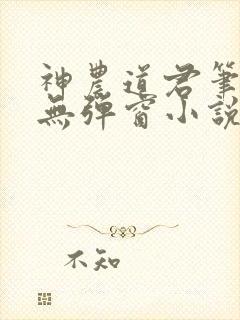 神農道君筆
無彈窗小說
不知